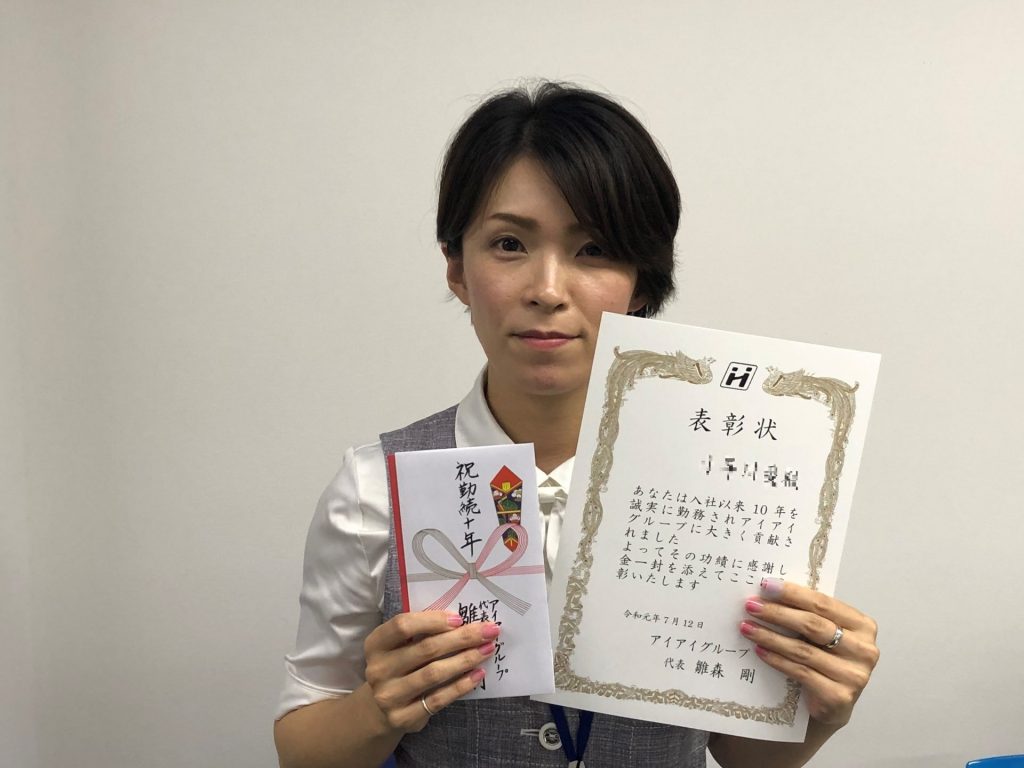 祝勤続十年
アイアイグループ
代表
表彰状
あなたは入社以来10年を
誠実に勤務されアイアイ
グループに大きく貢献さ
れました
よってその功績に感謝し
金一封を添えてここに
彰いたします
令和元年7月12日
アイアイグループ
代表 雛森 剛